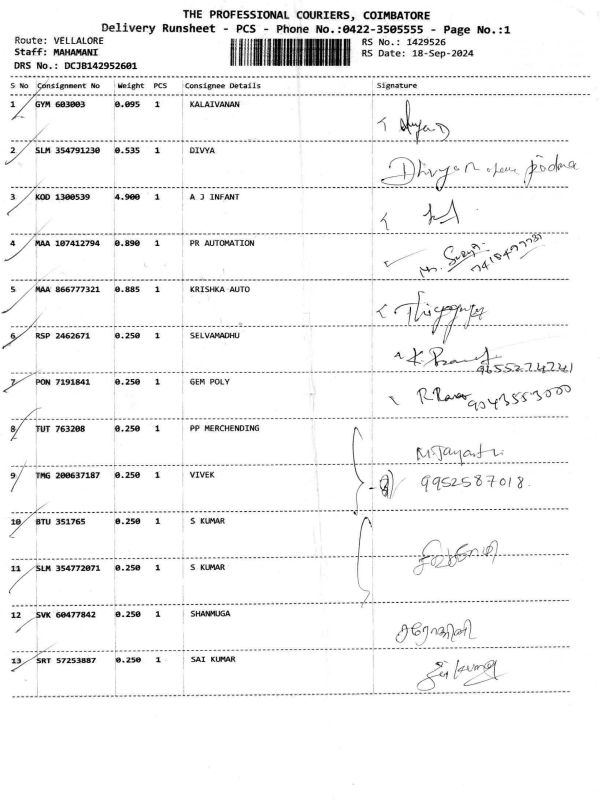 THE PROFESSIONAL COURIERS, COIMBATORE
Delivery Runsheet - PCS - Phone No.:0422-3505555 - Page No.:1
Route: VELLALORE
RS No.: 1429526
Staff: MAHAMANI
RS Date: 18-Sep-2024
DRS No.: DCJB142952601
S No Consignment No Weight PCS Consignee Details Signature
1 GYM 603003 0.095 1 KALAIVANAN
2 SLM 354791230 0.535 1 DIVYA
Dhivya
3 KOD 1300539 4.900 1 A J INFANT
4 MAA 107412794 0.890 1 PR AUTOMATION
5 MAA 866777321 0.885 1 KRISHKA AUTO
6 RSP 2462671 0.250 1 SELVAMADHU
9655274741
7 PON 7191841 0.250 1 GEM POLY
9043553000
8 TUT 763208 0.250 1 PP MERCHENDING
9 TMG 200637187 0.250 1 VIVEK
9952587018.
10 BTU 351765 0.250 1 S KUMAR
11 SLM 354772071 0.250 1 S KUMAR
12 SVK 60477842 0.250 1 SHANMUGA
13 SRT 57253887 0.250 1 SAI KUMAR